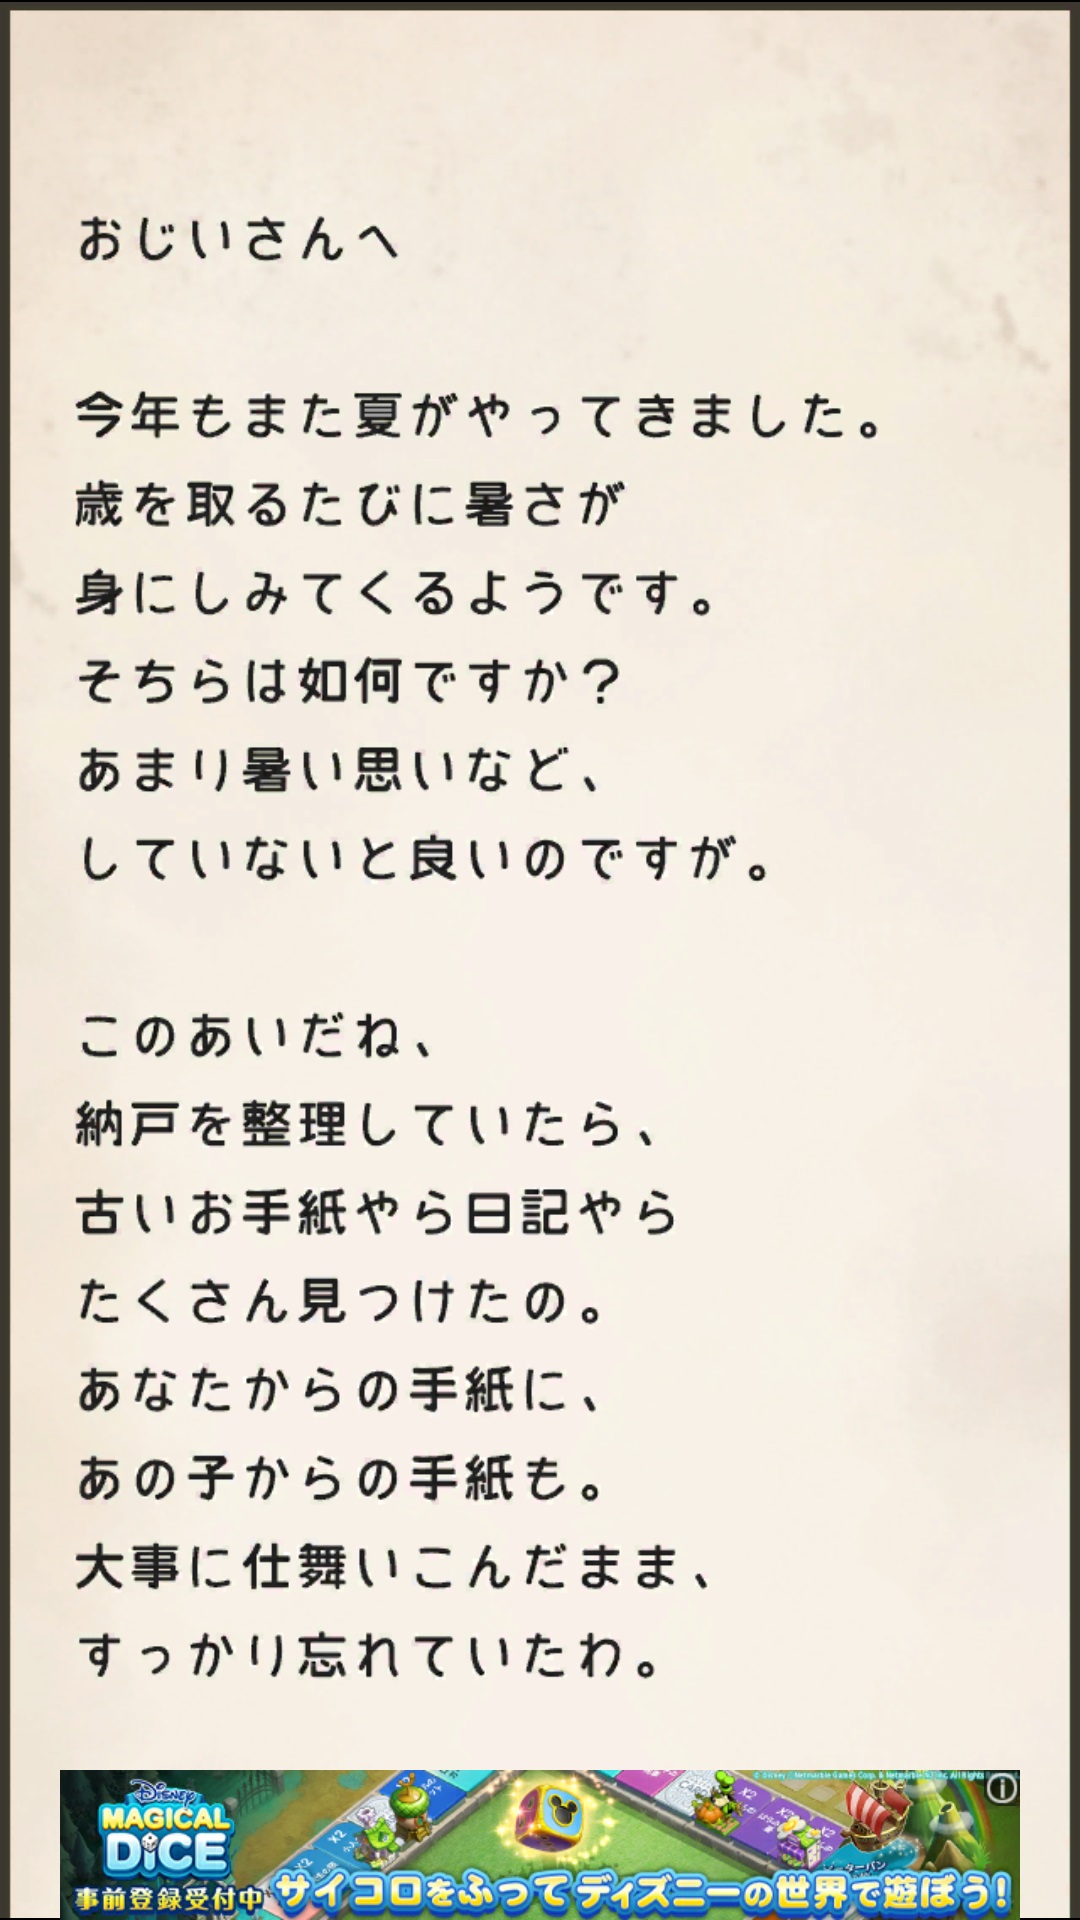 おじいさんへ
今年もまた夏がやってきました。
歳を取るたびに暑さが
身にしみてくるようです。
そちらは如何ですか？
あまり暑い思いなど、
していないと良いのですが。
このあいだね、
納戸を整理していたら、
古いお手紙やら日記やら
たくさん見つけたの。
あなたからの手紙に、
あの子からの手紙も。
大事に仕舞いこんだまま、
すっかり忘れていたわ。
Disney
MAGICAL
DICE
事前登録受付中
サイコロをふってディズニーの世界で遊ぼう!